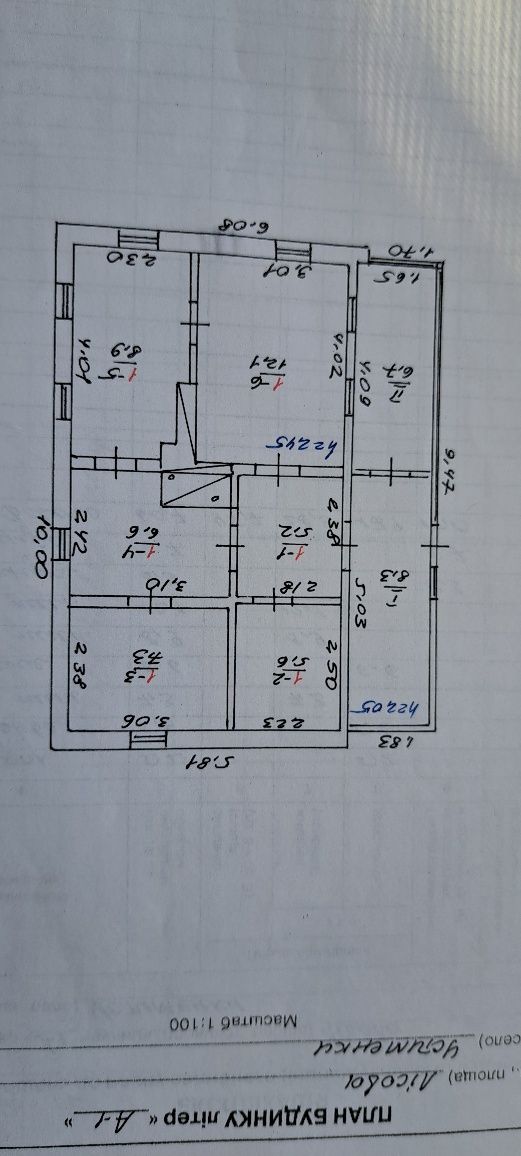 ПЛАН БУДИНКУ літер « А-1 »
., площа) Лісова
село) Устименки
Масштаб 1:100
5,81
1,83
2,23
3,06
h=2,05
1-2
5,6
2,50
1-3
7,3
2,38
5,03
2,18
3,10
I
8,3
2,38
1-1
5,2
1-4
6,6
2,42
10,00
9,47
h=2,45
II
6,7
4,09
4,02
1-6
12,1
1-5
8,9
4,01
1,65
3,01
2,30
1,70
6,08